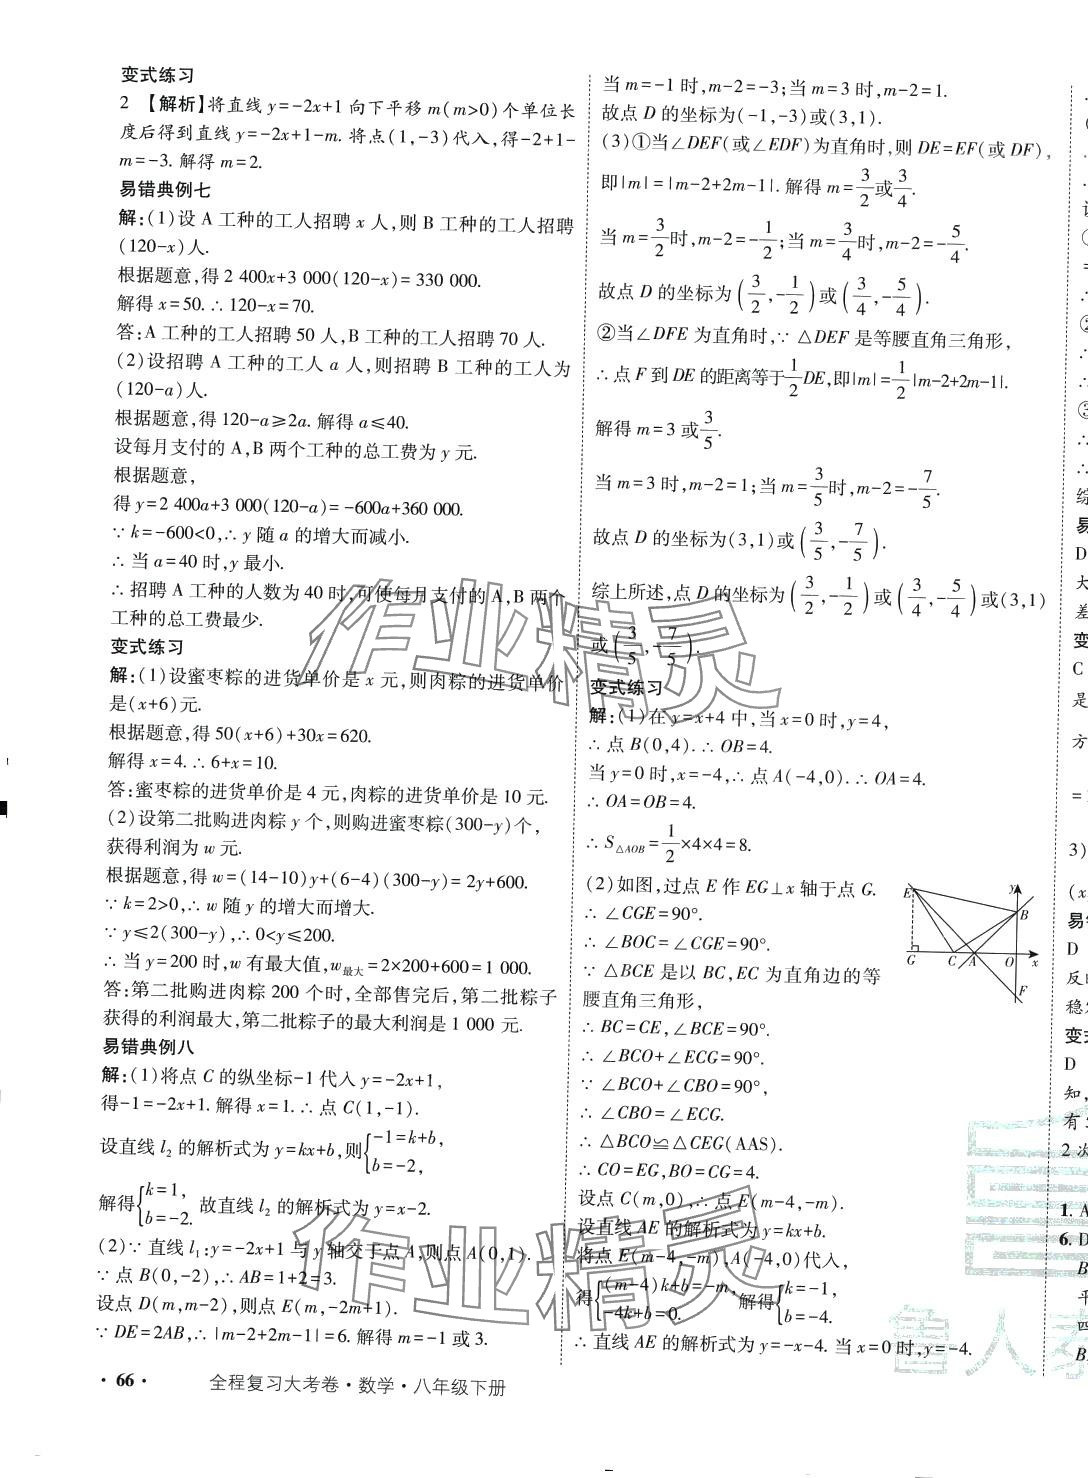 变式练习
2 【解析】将直线 y=-2x+1 向下平移 m(m>0)个单位长
度后得到直线 y=-2x+1-m. 将点(1,-3)代入,得-2+1-
m=-3. 解得 m=2.
易错典例七
解:(1)设 A 工种的工人招聘 x 人,则 B 工种的工人招聘
(120-x)人.
根据题意,得 2 400x+3 000(120-x)=330 000.
解得 x=50. ∴ 120-x=70.
答:A 工种的工人招聘 50 人,B 工种的工人招聘 70 人.
(2)设招聘 A 工种的工人 a 人,则招聘 B 工种的工人为
(120-a)人.
根据题意,得 120-a≥2a. 解得 a≤40.
设每月支付的 A,B 两个工种的总工费为 y 元.
根据题意,
得 y=2 400a+3 000(120-a)=-600a+360 000.
∵ k=-600<0,∴ y 随 a 的增大而减小.
∴ 当 a=40 时,y 最小.
∴ 招聘 A 工种的人数为 40 时,可使每月支付的 A,B 两个
工种的总工费最少.
变式练习
解:(1)设蜜枣粽的进货单价是 x 元,则肉粽的进货单价
是(x+6)元.
根据题意,得 50(x+6)+30x=620.
解得 x=4. ∴ 6+x=10.
答:蜜枣粽的进货单价是 4 元,肉粽的进货单价是 10 元.
(2)设第二批购进肉粽 y 个,则购进蜜枣粽(300-y)个,
获得利润为 w 元.
根据题意,得 w=(14-10)y+(6-4)(300-y)=2y+600.
∵ k=2>0,∴ w 随 y 的增大而增大.
∵ y≤2(300-y),∴ 0<y≤200.
∴ 当 y=200 时,w 有最大值,w最大=2×200+600=1 000.
答:第二批购进肉粽 200 个时,全部售完后,第二批粽子
获得的利润最大,第二批粽子的最大利润是 1 000 元.
易错典例八
解:(1)将点 C 的纵坐标-1 代入 y=-2x+1,
得-1=-2x+1. 解得 x=1. ∴ 点 C(1,-1).
设直线 l₂ 的解析式为 y=kx+b,则{-1=k+b, b=-2,
解得{k=1, b=-2. 故直线 l₂ 的解析式为 y=x-2.
(2)∵ 直线 l₁:y=-2x+1 与 y 轴交于点 A,则点 A(0,1).
∵ 点 B(0,-2),∴ AB=1+2=3.
设点 D(m,m-2),则点 E(m,-2m+1).
∵ DE=2AB,∴ |m-2+2m-1|=6. 解得 m=-1 或 3.
当 m=-1 时,m-2=-3;当 m=3 时,m-2=1.
故点 D 的坐标为(-1,-3)或(3,1).
(3)①当∠DEF(或∠EDF)为直角时,则 DE=EF(或 DF),
即|m|=|m-2+2m-1|. 解得 m=3/2或3/4.
当 m=3/2时,m-2=-1/2;当 m=3/4时,m-2=-5/4.
故点 D 的坐标为(3/2,-1/2)或(3/4,-5/4).
②当∠DFE 为直角时,∵ △DEF 是等腰直角三角形,
∴ 点 F 到 DE 的距离等于1/2DE,即|m|=1/2|m-2+2m-1|.
解得 m=3 或3/5.
当 m=3 时,m-2=1;当 m=3/5时,m-2=-7/5.
故点 D 的坐标为(3,1)或(3/5,-7/5).
综上所述,点 D 的坐标为(3/2,-1/2)或(3/4,-5/4)或(3,1)
或(3/5,-7/5).
变式练习
解:(1)在 y=x+4 中,当 x=0 时,y=4,
∴ 点 B(0,4). ∴ OB=4.
当 y=0 时,x=-4,∴ 点 A(-4,0). ∴ OA=4.
∴ OA=OB=4.
∴ S△AOB=1/2×4×4=8.
(2)如图,过点 E 作 EG⊥x 轴于点 G.
∴ ∠CGE=90°.
∴ ∠BOC=∠CGE=90°.
∵ △BCE 是以 BC,EC 为直角边的等
腰直角三角形,
∴ BC=CE,∠BCE=90°.
∴ ∠BCO+∠ECG=90°.
∵ ∠BCO+∠CBO=90°,
∴ ∠CBO=∠ECG.
∴ △BCO≌△CEG(AAS).
∴ CO=EG,BO=CG=4.
设点 C(m,0),∴ 点 E(m-4,-m).
设直线 AE 的解析式为 y=kx+b.
将点 E(m-4,-m),A(-4,0)代入,
得{(m-4)k+b=-m, -4k+b=0. 解得{k=-1, b=-4.
∴ 直线 AE 的解析式为 y=-x-4. 当 x=0 时,y=-4.
E y B G C A O x F
· 66 · 全程复习大考卷·数学·八年级下册
作业精灵
作业精灵
鲁人